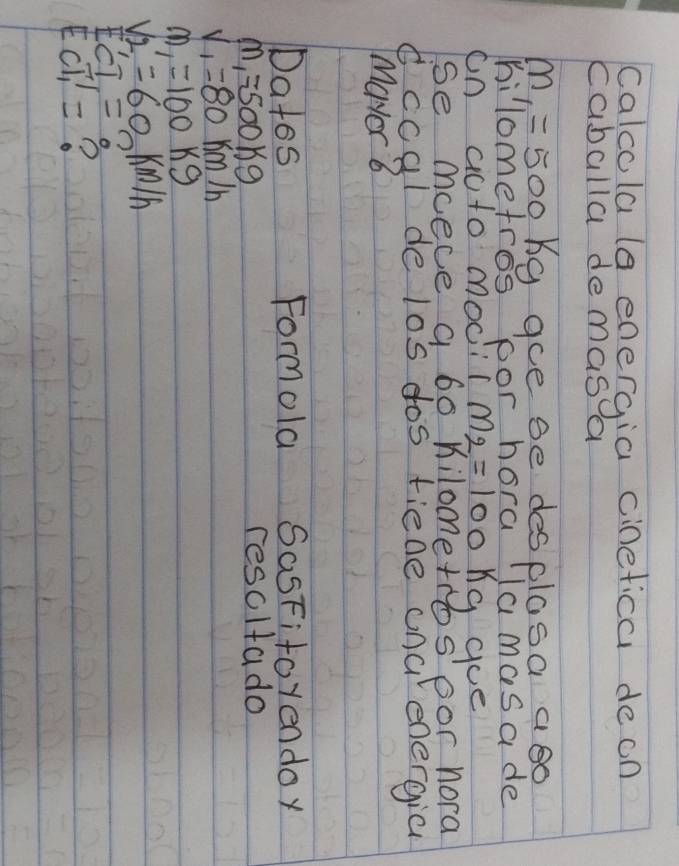 calcula la energia cinetica de un
caballa de masa
m₁=500 Kg que se desplasa a 80
Kilometros por hora la masa de
un auto movil m₂=100 Kg que
se mueve a 60 Kilometros por hora
d cual de los dos tiene una energia
Mayor ?
Datos Formula Sustituyendo y
m₁=500 Kg resultado
V₁=80 Km/h
m₁=100 Kg
V₂=60 Km/h
Ec₁=?
Ec₁=?